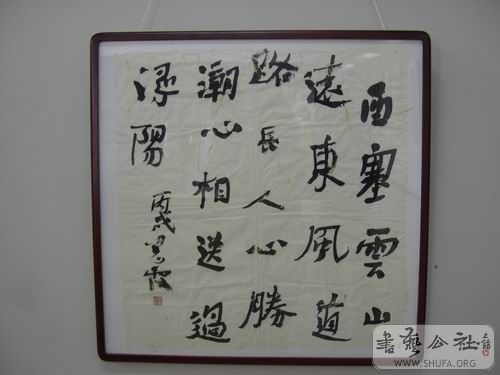 西塞雲山
遠東風道
路長人心勝
潮心相送過
溧陽
丙戌
書藝公社
WWW.SHUFA.ORG